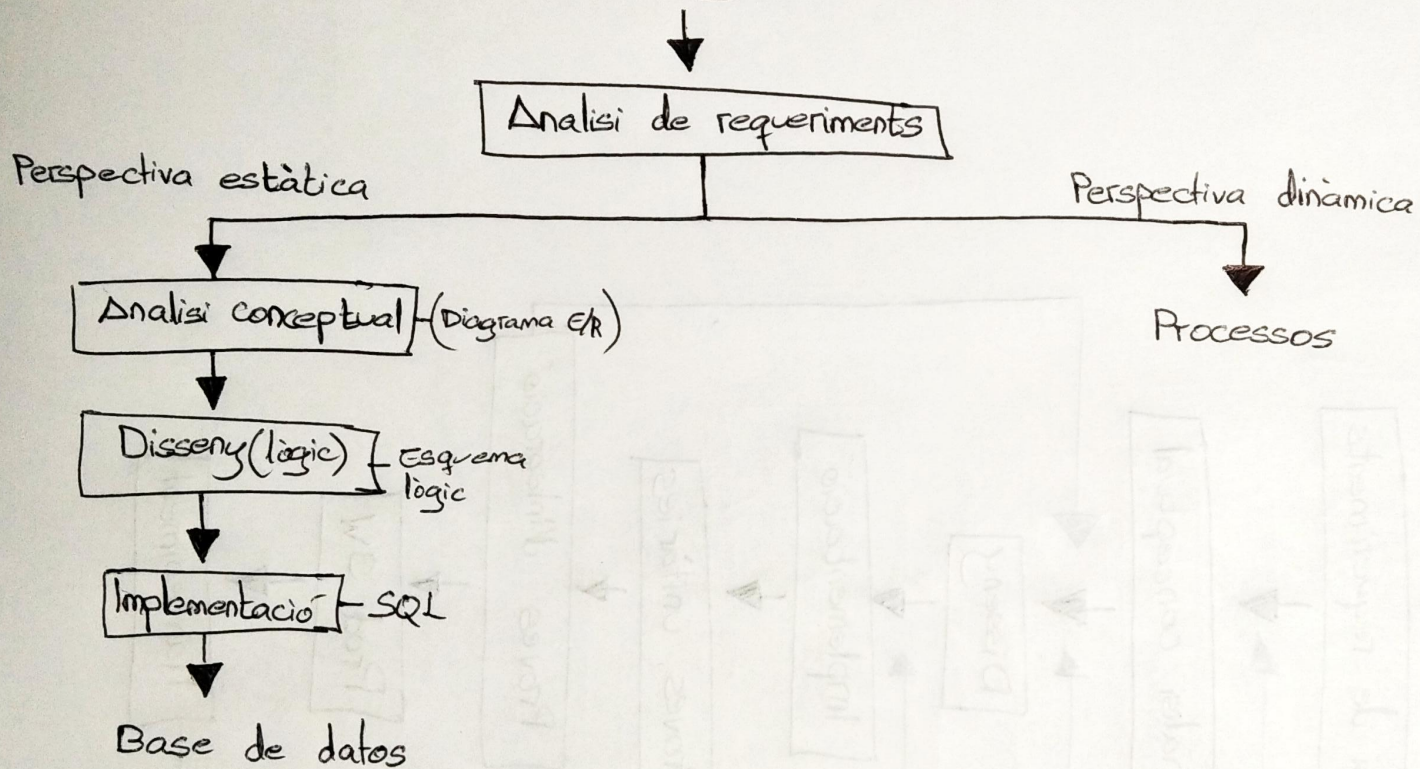 Analisi de requeriments
Perspectiva estàtica
Perspectiva dinàmica
Analisi conceptual
(Diagrama E/R)
Processos
Disseny (lògic)
Esquema
lògic
Implementació
SQL
Base de datos